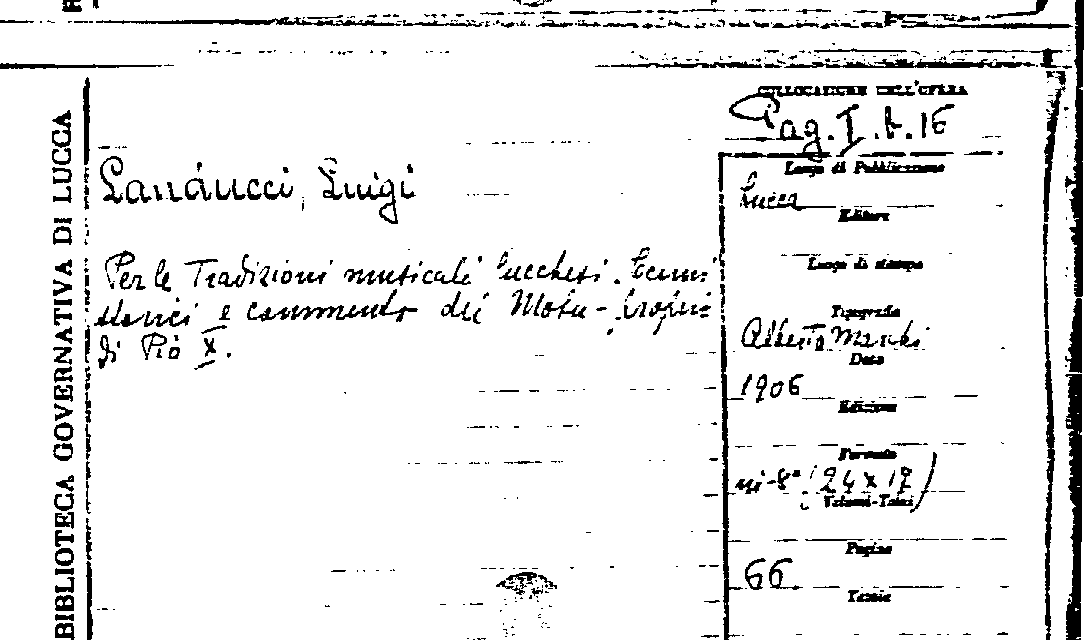 BIBLIOTECA GOVERNATIVA DI LUCCA
COLLOCAZIONE DELL'OPERA
Pag. I. b. 16
Landucci, Luigi
Per le Tradizioni musicali lucchesi. Cenni
storici e commento dei Motu-propri
di Pio X.
Luogo di Pubblicazione
Lucca
Editore
Luogo di stampa
Tipografia
Alberto Marchi
Data
1906
Edizione
Formato
in-8° (24 x 17)
Volumi-Tomi
Pagine
66
Tavole